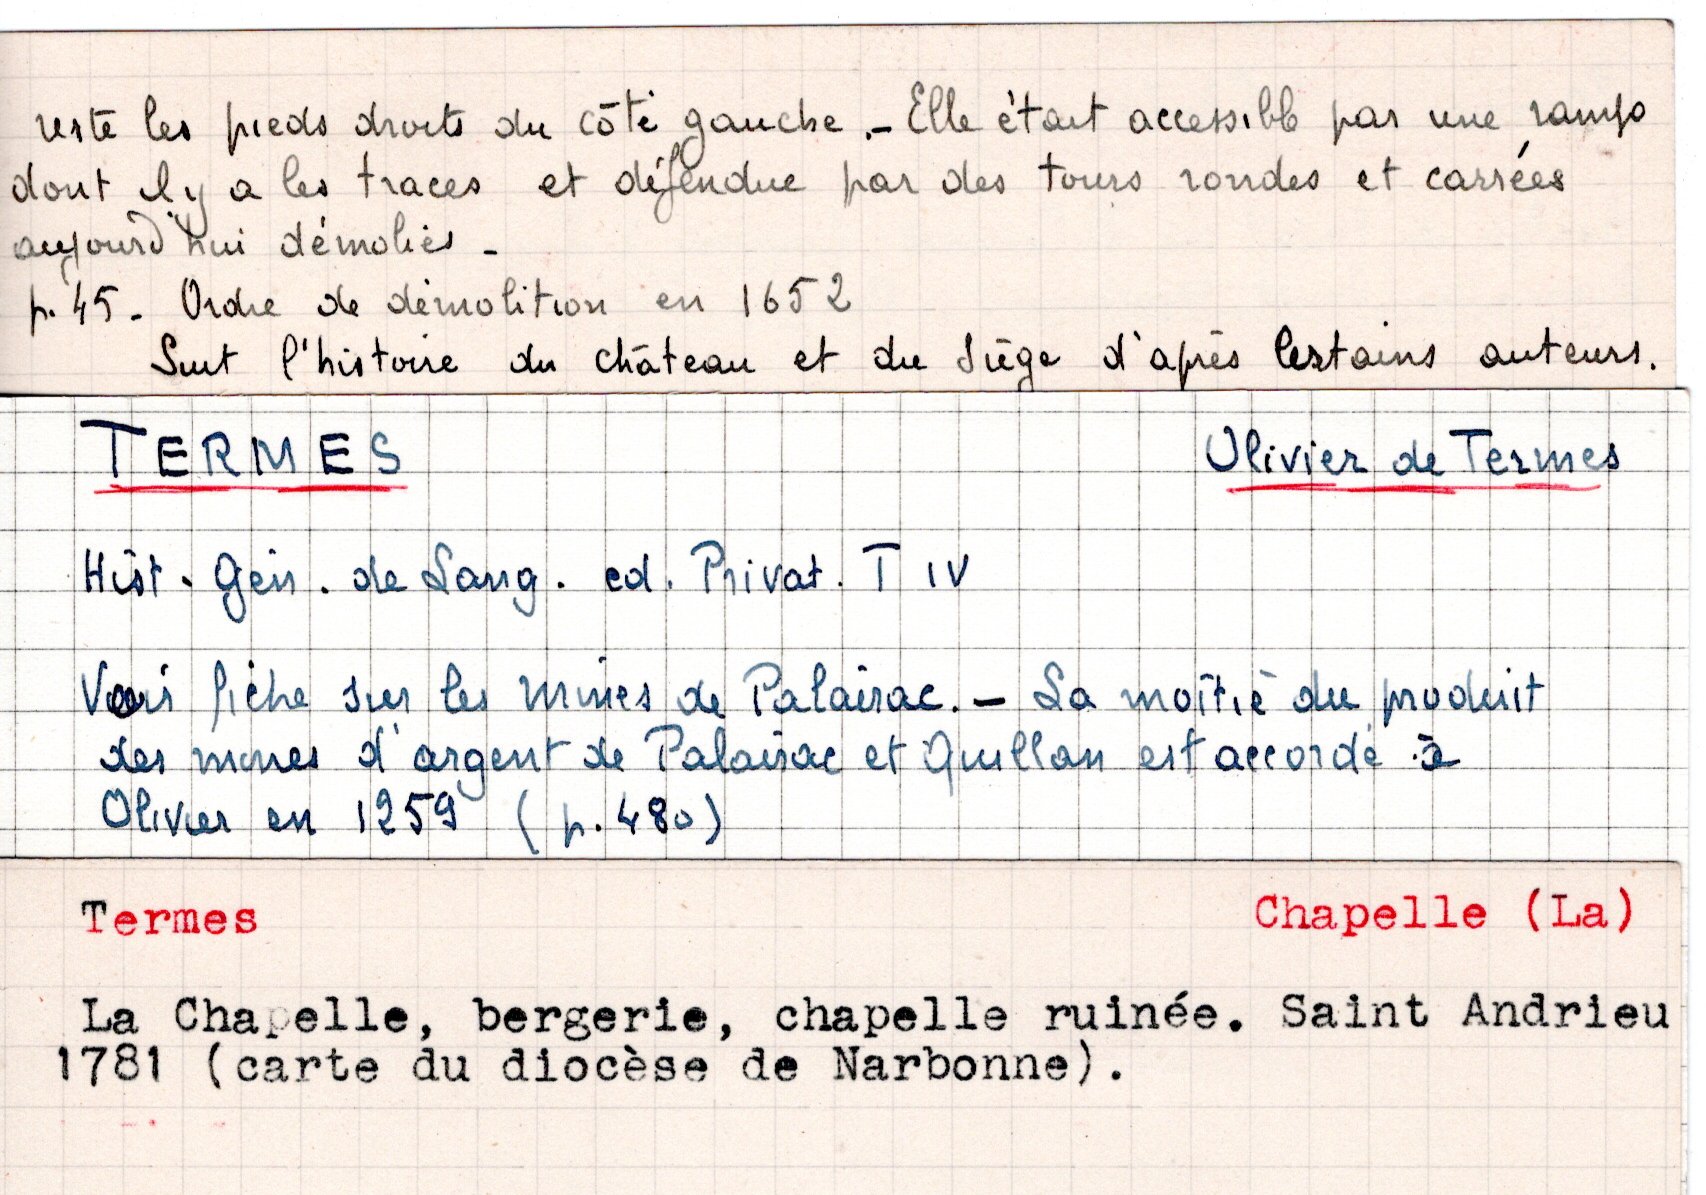 reste les pieds droits du côté gauche. - Elle était accessible par une rampe
dont il y a les traces et défendue par des tours rondes et carrées
aujourd'hui démolies -
p. 45 - Ordre de démolition en 1652
Suit l'histoire du château et du siège d'après certains auteurs.
TERMES Olivier de Termes
Hist. Gén. de Lang. ed. Privat. T IV
Voir fiche sur les mines de Palairac. - La moitié du produit
des mines d'argent de Palairac et Quillan est accordé à
Olivier en 1259 (p. 480)
Termes Chapelle (La)
La Chapelle, bergerie, chapelle ruinée. Saint Andrieu
1781 (carte du diocèse de Narbonne).